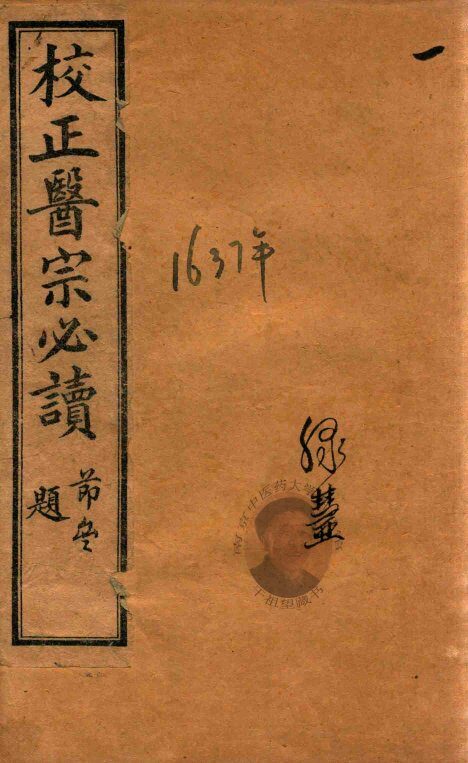 一
校正醫宗必讀
節安
題
1637年
緑慧
南京中医药大学
王祖望藏书